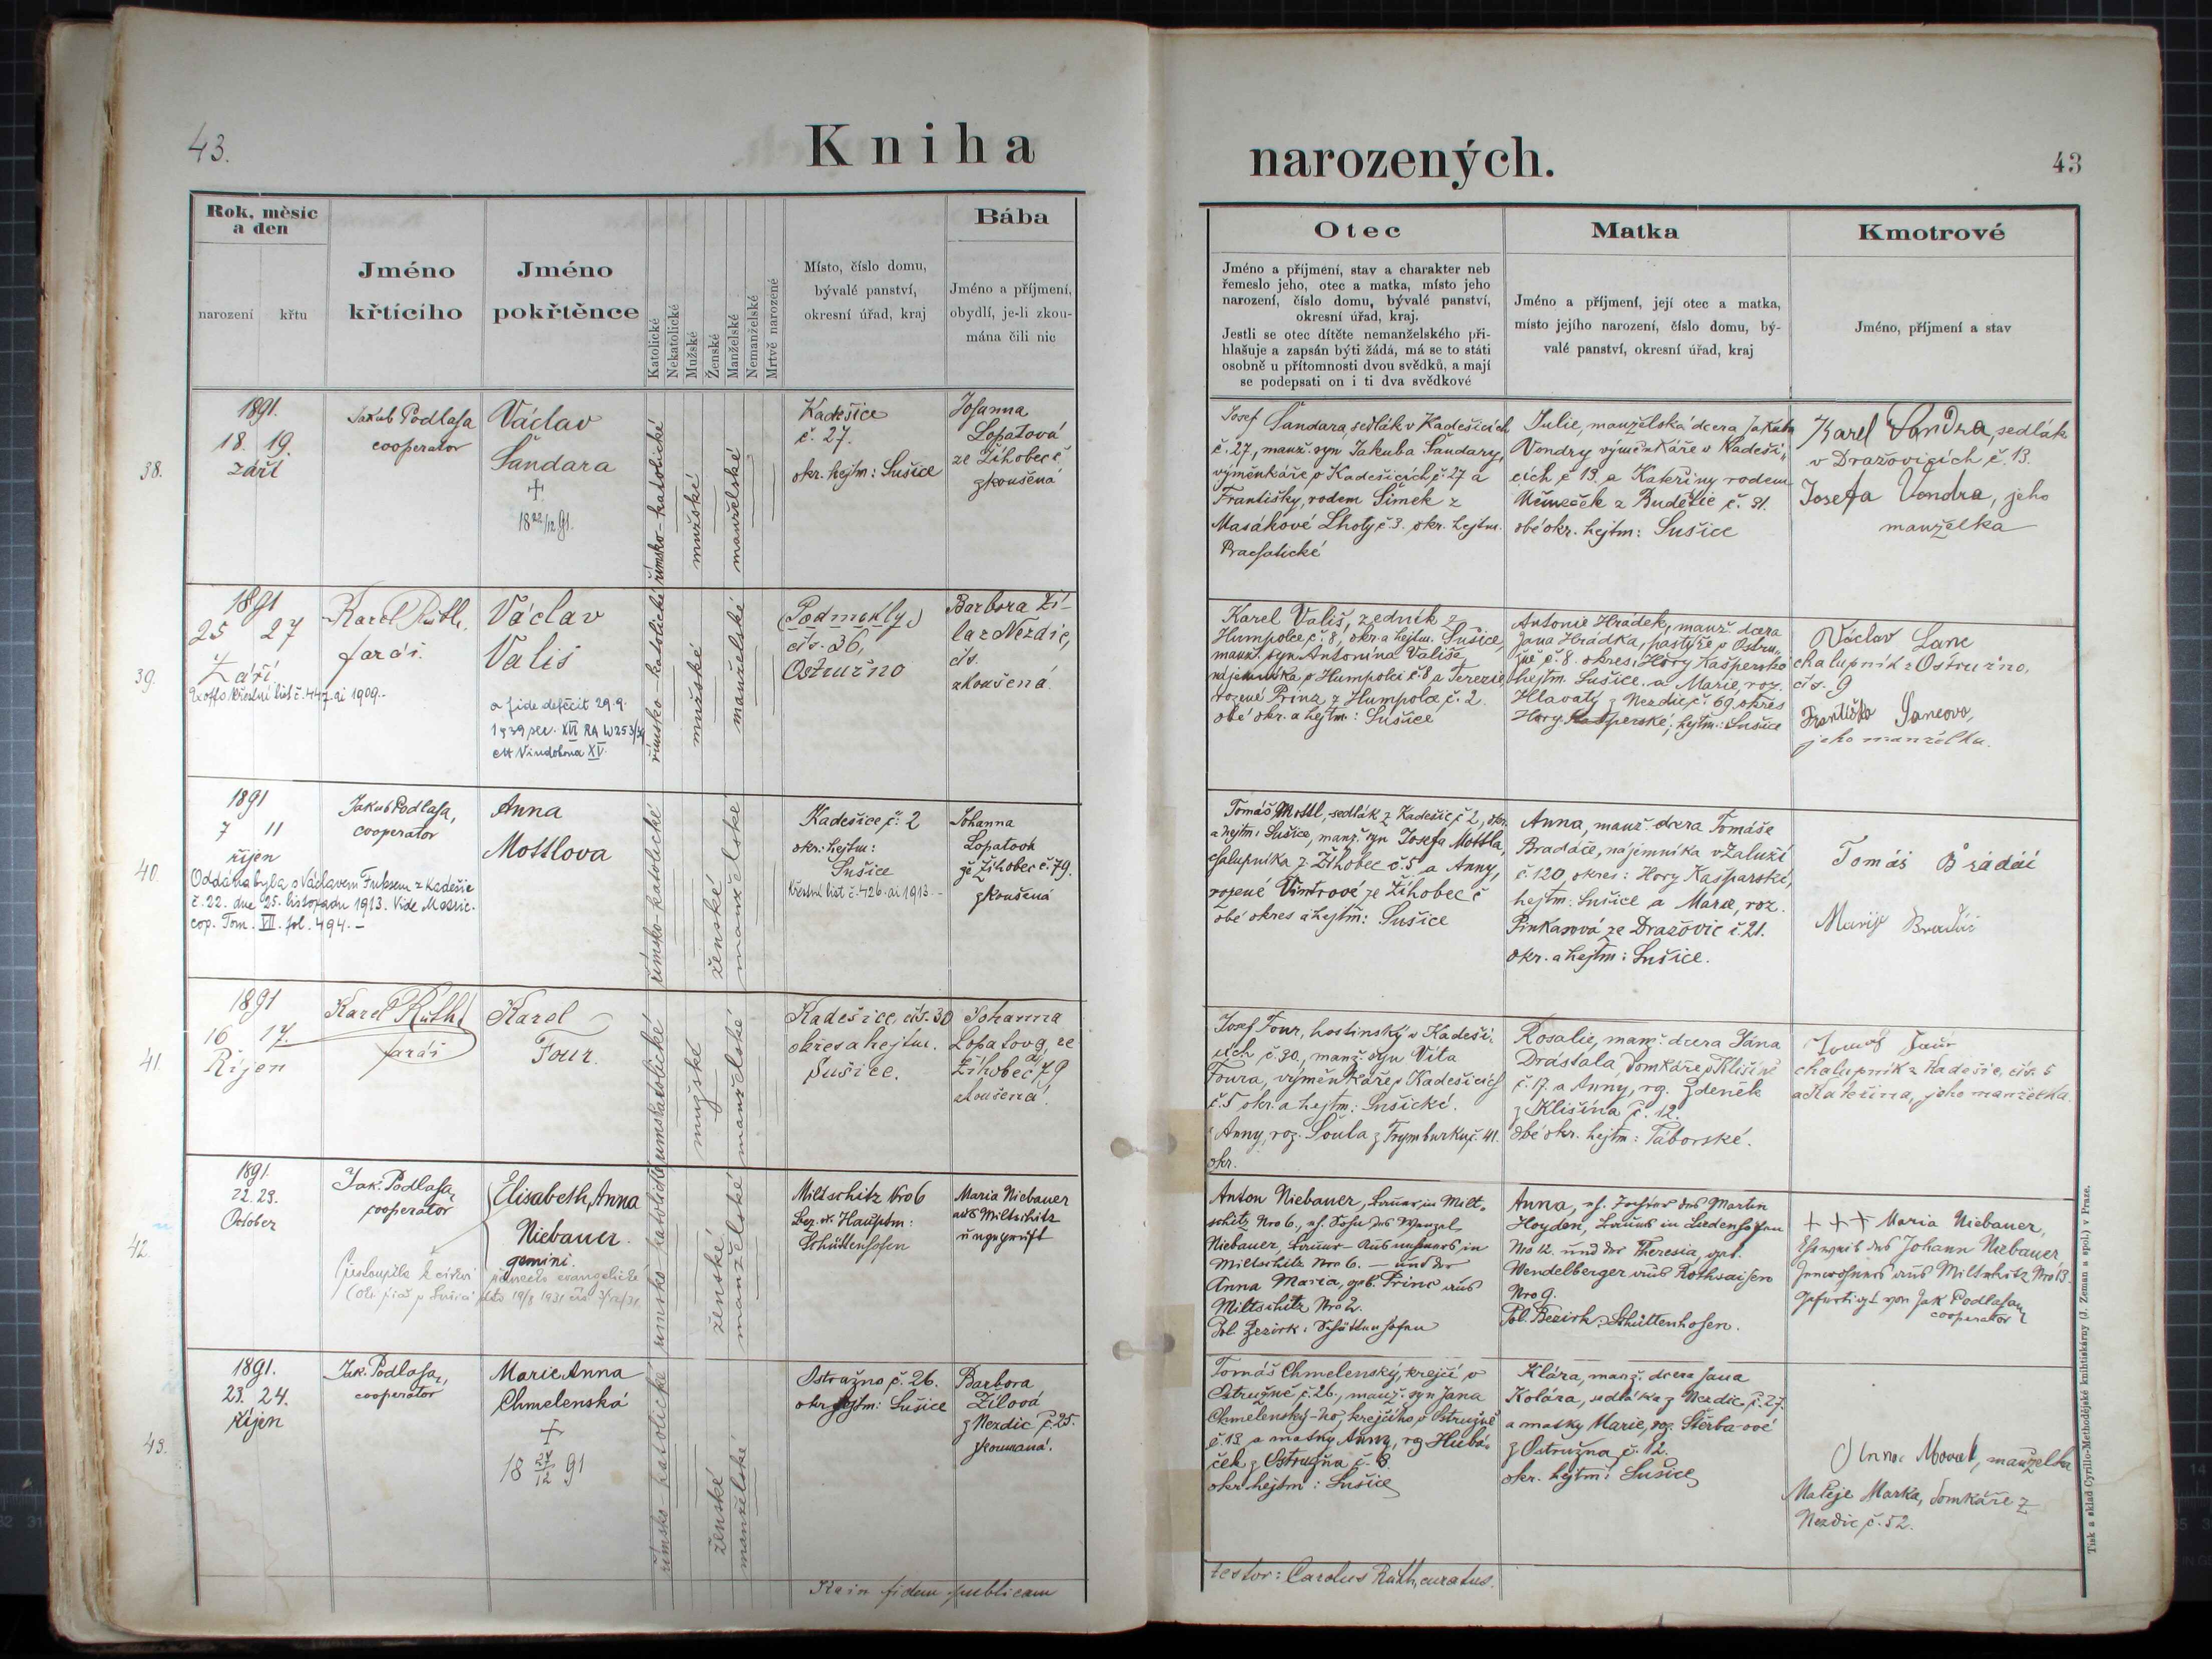 43.
Kniha
narozených.
43
Rok, měsíc
a den
narození
křtu
Jméno
křtícího
Jméno
pokřtěnce
Katolické
Nekatolické
Mužské
Ženské
Manželské
Nemanželské
Mrtvě narozené
Místo, číslo domu,
bývalé panství,
okresní úřad, kraj
Bába
Jméno a příjmení,
obydlí, je-li zkou-
mána čili nic
Otec
Jméno a příjmení, stav a charakter neb
řemeslo jeho, otec a matka, místo jeho
narození, číslo domu, bývalé panství,
okresní úřad, kraj.
Jestli se otec dítěte nemanželského při-
hlašuje a zapsán býti žádá, má se to státi
osobně u přítomnosti dvou svědků, a mají
se podepsati on i ti dva svědkové
Matka
Jméno a příjmení, její otec a matka,
místo jejího narození, číslo domu, bý-
valé panství, okresní úřad, kraj
Kmotrové
Jméno, příjmení a stav
38.
1891.
18. 19.
září
Jakub Podlaha
cooperator
Václav
Šandara
†
18 22/12 91.
římsko-katolické
mužské
manželské
Kadešice
č. 27.
okr. hejtm: Sušice
Johanna
Lopatová
ze Žihobec č
zkoušená
Josef Šandara, sedlák v Kadešicích
č. 27, manž. syn Jakuba Šandary,
výměnkáře v Kadešicích č. 27 a
Františky, rodem Šimek z
Masákové Lhoty č. 3. okr. hejtm.
Prachatické
Julie, manželská dcera Jakuba
Vondry výměnkáře v Kadeši-
cích č 13. a Kateřiny rodem
Němeček z Budětic č. 31.
obé okr. hejtm: Sušice
Karel Vondra, sedlák
v Dražovicích č. 13.
Josefa Vondra, jeho
manželka
39.
1891
25 27
Září
Ex offo křestní list č. 447 ai 1909.-
Karel Rüth,
farář.
Václav
Vališ
a fide defecit 29.9.
1939
římsko-katolické
mužské
manželské
(Podmokly)
čís. 36,
Ostružno
Barbora Ží-
la z Nezdic,
čís.
zkoušená.
Karel Vališ, zedník z
Humpolce č. 8, okr. a hejtm. Sušice,
manž. syn Antonína Vališe,
nájemníka v Humpolci č. 8 a Terezie,
rozené Prinz z Humpolce č. 2.
obé okr. a hejtm.: Sušice
Antonie Hrádek, manž. dcera
Jana Hrádka, pastýře v Ostru-
žně č. 8. okres: Hory Kašperské
hejtm. Sušice. a Marie, roz.
Hlavatý z Nezdic č. 69 okres
Hory Kašperské; hejtm.: Sušice
Václav Lanc
chalupník z Ostružno,
čís. 9
Františka Lancova,
jeho manželka.
40.
1891
7 11
říjen
Oddána byla s Václavem Fuksem z Kadešic
č. 22. dne 25. listopadu 1913. Vide Matric.
cop. Tom. VII. fol. 494.-
Jakub Podlaha,
cooperator
Anna
Mottlova
římsko-katolické
ženské
manželské
Kadešice č: 2
okr: hejtm:
Sušice
Křestní list č. 426. ai 1913.-
Johanna
Lopatova
ze Žihobec č. 79.
zkoušená
Tomáš Mottl, sedlák z Kadešic č 2, okr.
a hejtm: Sušice, manž. syn Josefa Mottla,
chalupníka z Žihobec č. 5 a Anny,
rozené ze Žihobec č
obé okres a hejtm: Sušice
Anna, manž. dcera Tomáše
Bradáče, nájemníka v Zaluží
č. 120 okres: Hory Kašperské,
hejtm. Sušice a Marie, roz.
Pinkasová ze Dražovic č. 21.
okr. a hejtm: Sušice.
Tomáš Bradáč
Marije Bradáč
41.
1891
16 17.
Říjen
Karel Rüth,
farář
Karel
Four.
římskokatolické
mužské
manželské
Kadešice, čís. 30
okres a hejtm.
Sušice.
Johanna
Lopatova, ze
Žihobec 79
zkoušená.
Josef Four, hostinský v Kadeši-
cích č. 30., manž. syn Víta
Foura, výměnkáře v Kadešicích
č. 5 okr. a hejtm: Sušické.
z Anny, roz. Šoula z Frymburku č. 41.
okr.
Rosalie, manž. dcera Jana
Drastala, domkáře v Klišíně
č. 17. a Anny, rz. Zdeněk
z Klišína č. 12.
obé okr. hejtm: Táborské.
Tomáš Faur
chalupník z Kadešic, čís. 5
a Kateřina, jeho manželka.
42.
1891.
22. 23.
October
Jak. Podlaha,
cooperator
Elisabeth, Anna
Niebauer.
gemini.
římsko-katolické
ženské
manželské
Miltschitz Nro 6
Bez. u. Hauptm:
Schüttenhofen
Maria Niebauer
aus Miltschitz
ungeprüft
Anton Niebauer, Bauer in Milt-
schitz Nro 6., eh. Sohn des Wenzel
Niebauer, Bauer-Ausnehmers in
Miltschitz Nro 6. – und der
Anna Maria, geb. Princ aus
Miltschitz Nro 2.
Pol. Bezirk: Schüttenhofen
Anna, eh. Tochter des Martin
Hoyden, Bauers in
Nro 12. und der Theresia, geb.
Wendelberger aus Rothsaifen
Nro 9.
Pol. Bezirk: Schüttenhofen.
+++ Maria Niebauer,
Eheweib des Johann Niebauer
Inwohners aus Miltschitz Nro 13.
Gefertigt von Jak Podlaha,
cooperator
43.
1891.
23. 24.
říjen
Jak. Podlaha,
cooperator
Marie Anna
Chmelenská
†
18 27/12 91
římsko-katolické
ženské
manželské
Ostružno č. 26.
okr. hejtm: Sušice
Barbora
Žílová
z Nezdic č. 25.
zkoumaná.
Tomáš Chmelenský, krejčí v
Ostružně č. 26., manž. syn Jana
Chmelenský-ho, krejčího v Ostružně
č. 13. a matky Anny, rz Hubá-
ček z Ostružna č. 8.
okr. hejtm: Sušice
Klára, manž. dcera Jana
Kolára, sedláka z Nezdic, č. 27.
a matky Marie, roz. Štěrba-ové
z Ostružna č. 12.
okr. hejtm: Sušice
Anna Marek, manželka
Matěje Marka, domkáře z
Nezdic č. 52.
fidem publicam
testor: Carolus Rüth, curatus.
Tisk a sklad Cyrillo-Methodějské knihtiskárny (J. Zeman a spol.) v Praze.